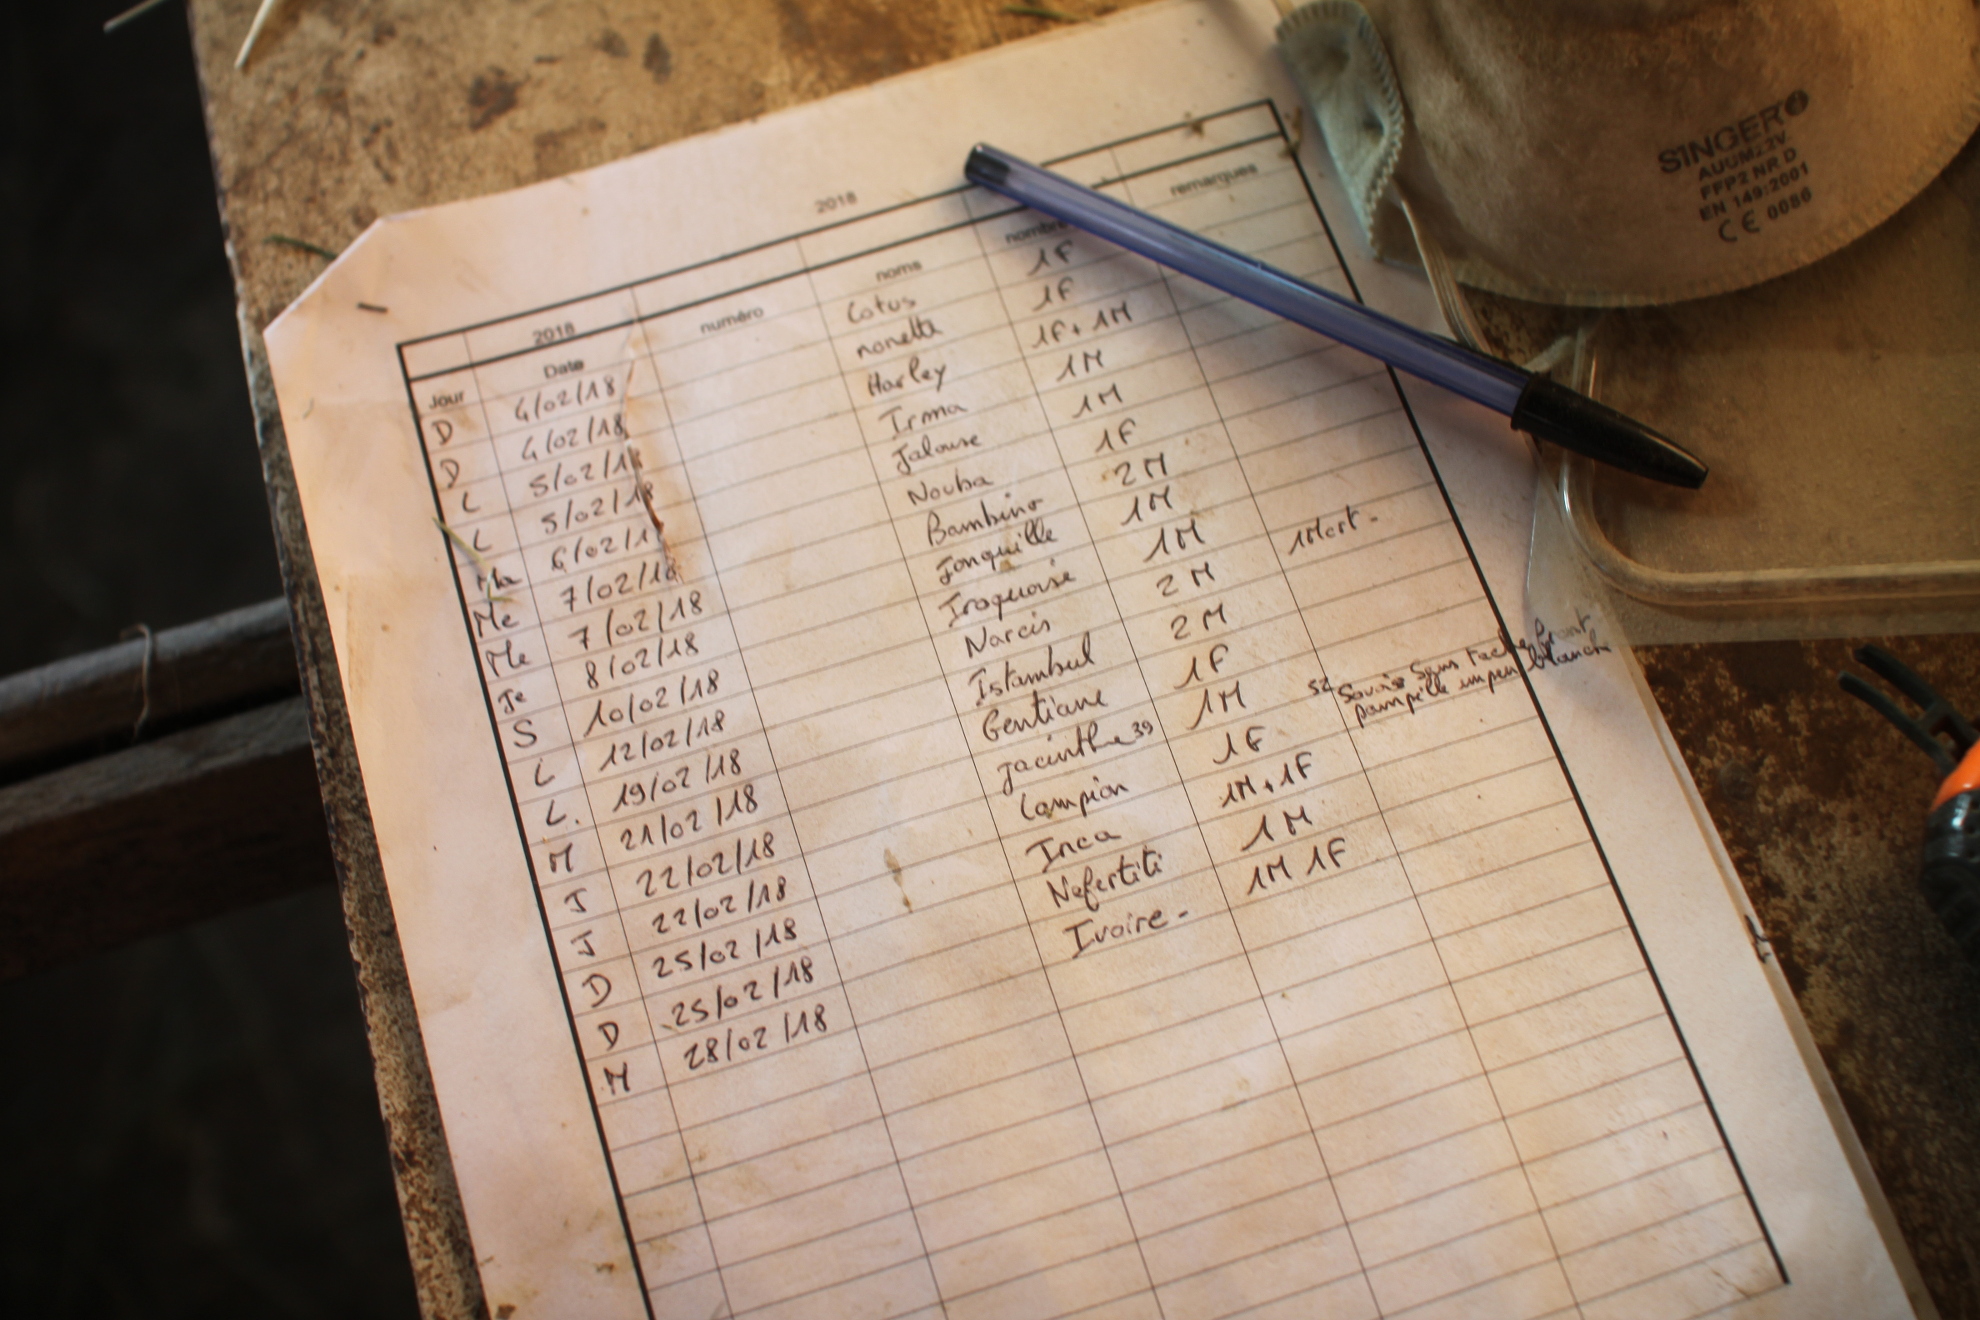 2018 2018
Jour Date numéro noms nombre remarques
D 4/02/18 Lotus 1F
D 4/02/18 nonetta 1F
L 5/02/18 Harley 1F+1M
L 5/02/18 Irma 1M
Ma 6/02/18 Jalouse 1M
Me 7/02/18 Nouba 1F
Me 7/02/18 Bambino 2M
Je 8/02/18 Jonquille 1M
S 10/02/18 Iroquoise 1M
L 12/02/18 Narcis 2M 1Mort-
L. 19/02/18 Istambul 2M
M 21/02/18 Gentiane 1F
J 22/02/18 Jacinthe 39 1M 52 Savoie tache front
pampille un peu blanche
J 22/02/18 Lampion 1F
D 25/02/18 Inca 1M+1F
D 25/02/18 Nefertiti 1M
M 28/02/18 Ivoire- 1M 1F
SINGER
AUUM23V
FFP2 NR D
EN 149:2001
CE 0086